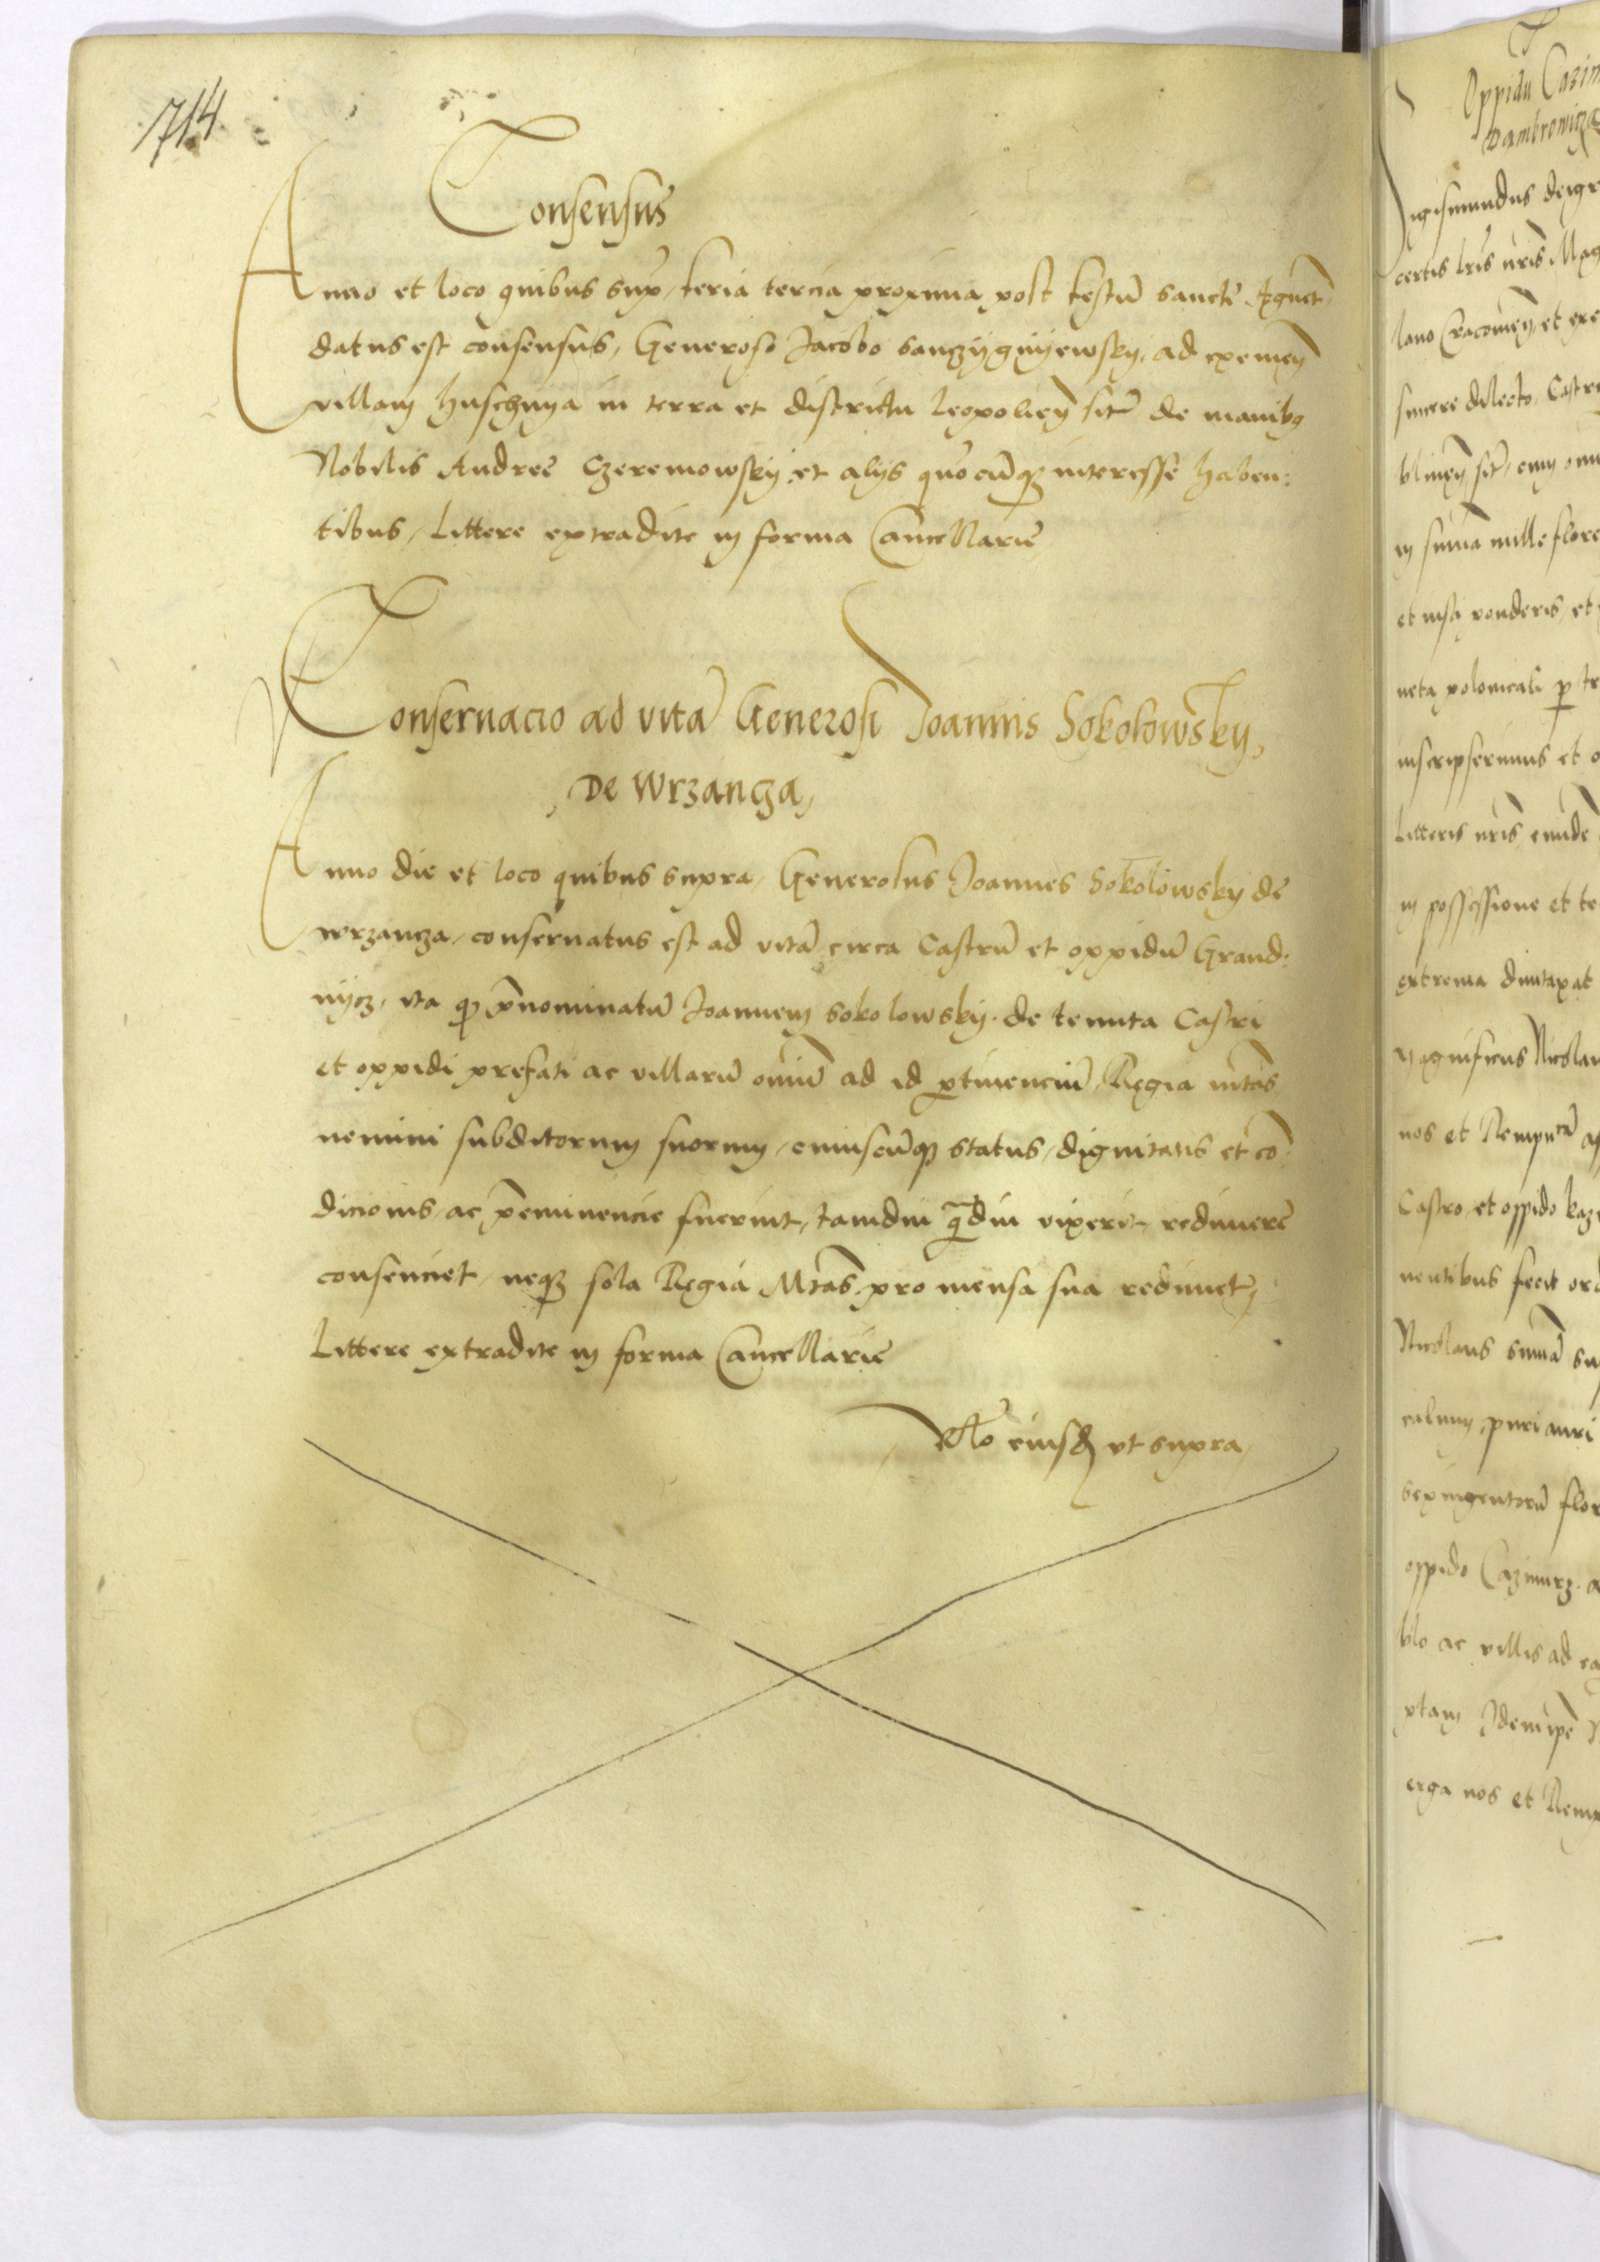 714
Consensus
Anno et loco quibus supra, feria tercia proxima post festum sancte
datus est consensus, Generoso Jacobo Sanczygnyewsky, ad eximen
villam huschnya in terra et districtu leopolien sitam de manibus
Nobilis Andree Czeremowsky et alijs quocumque interesse haben:
tibus, Littere extradite in forma Cancellarie
Conservacio ad vitam Generosi Joannis Sokolowsky,
De Wrzancza,
Anno die et loco quibus supra, Generosus Joannes Sokolowsky de
wrzancza, conservatus est ad vitam circa Castrum et oppidum Graud:
nycz, ita quod prenominatum Joannem Sokolowsky de tenuta Castri
et oppidi prefati ac villarum omnium ad id pertinencium, Regia mtas
nemini subditorum suorum, cuiuscumque status, dignitatis et con:
dicionis, ac preeminencie fuerint, tamdiu quamdiu vixerit, redimere
consenciet, neque sola Regia Mtas pro mensa sua redimet,
Littere extradite in forma Cancellarie
Relatio eiusdem ut supra,
Oppidum
Sigismundus dei gr
certis lris nris Mag
sincere dilecto, Castr
in summa mille flore
et iusti ponderis, et
inscripserimus et o
Litteris nris
in possessione et te
extrema dumtaxat
Magnificus Nicolau
nos et Rempu
Castro et oppido kaz
nentibus fecit ord
Nicolaus summam su
puri auri
flor
oppido Cazimirz
ac villis ad ea
erga nos et Remp